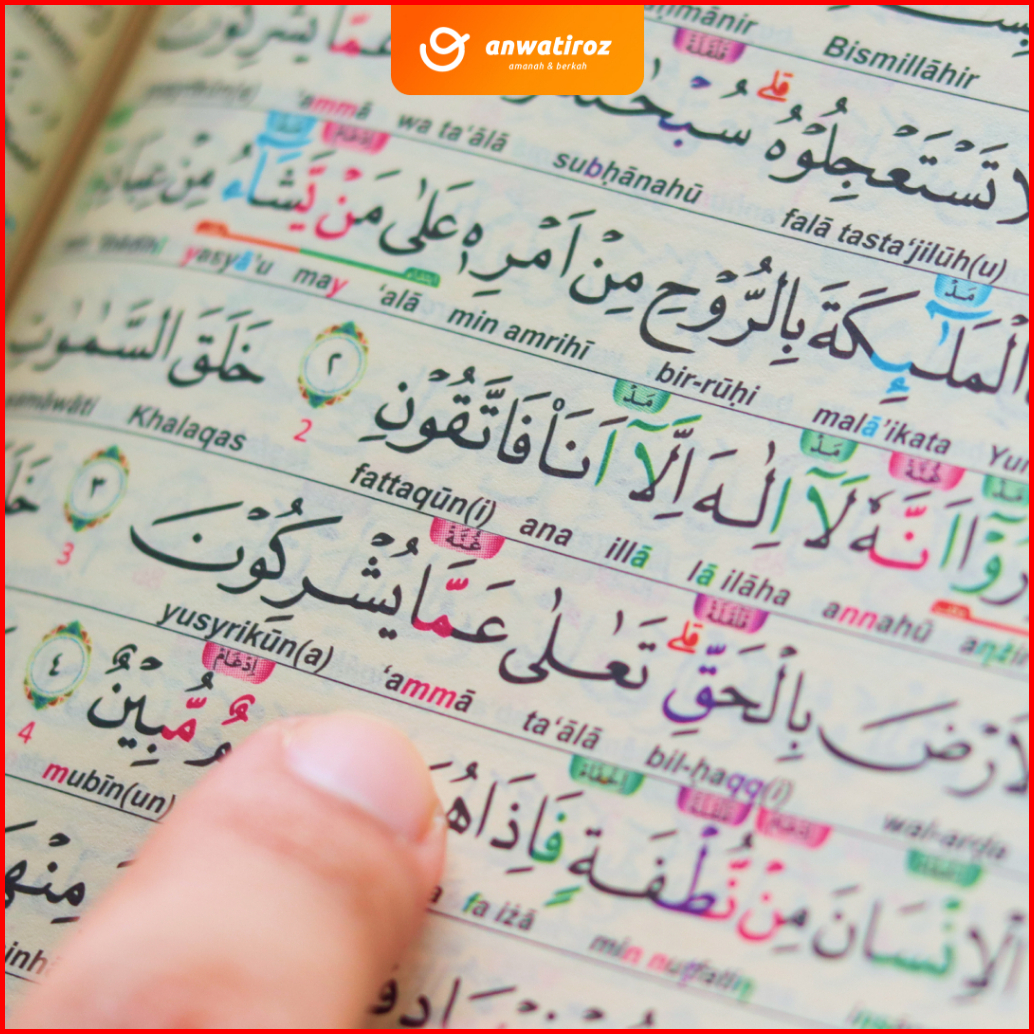 anwatiroz
amanah & berkah
Bismillāhir
عَمَّا يُشْرِكُوْنَ
لَا تَسْتَعْجِلُوْهُ ۗ سُبْحٰنَهٗ
'ammā wa ta'ālā subḥānahū falā tasta'jilūh(u)
الْمَلٰۤىِٕكَةَ بِالرُّوْحِ مِنْ اَمْرِهٖ عَلٰى مَنْ يَّشَاۤءُ مِنْ عِبَادِهٖٓ
yasyā'u may 'alā min amrihī bir-rūḥi malā'ikata
اَنَّهٗ لَآ اِلٰهَ اِلَّآ اَنَا۠ فَاتَّقُوْنِ ٢ خَلَقَ السَّمٰوٰتِ
Khalaqas 2 fattaqūn(i) ana illā lā ilāha annahū
بِالْحَقِّۗ تَعٰلٰى عَمَّا يُشْرِكُوْنَ ٣
3 yusyrikūn(a) 'ammā ta'ālā bil-ḥaqq(i) wal-arḍa
الْاِنْسَانَ مِنْ نُّطْفَةٍ فَاِذَا مُّبِيْنٌ ٤
4 mubīn(un) fa iżā min nuṭfatin
مِنْهَا